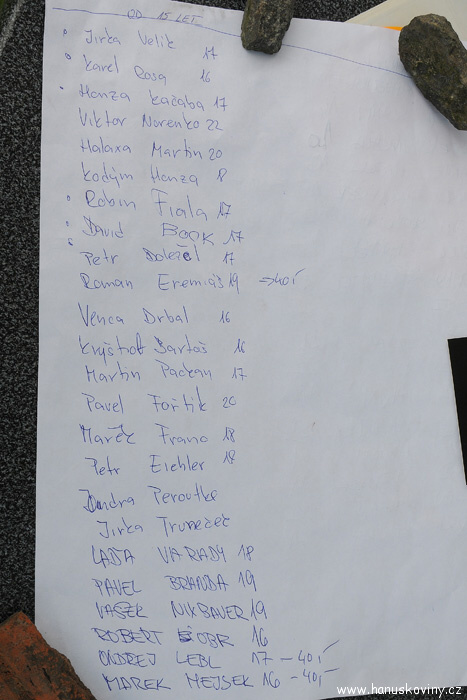 OD 15 LET
Jirka Velik 17
Karel Rosa 16
Honza Kačaba 17
Viktor Norenko 22
Halaxa Martin 20
Kodým Honza 8
Robin Fiala 17
David BOOK 17
Petr Doležel 17
Roman Eremiáš 19 → 40,-
Venca Drbal 16
Kryštof Bartoš 16
Martin Packan 17
Pavel Fořtik 20
Marek Franc 18
Petr Eichler 18
Ondra Peroutka
Jirka Truneček
LAĎA VARADY 18
PAVEL BRANDA 19
VAŠEK NIKBAUER 19
ROBERT ŠOBR 16
ONDREJ LEBL 17 – 40,-
MAREK MEJSEK 16 – 40,-
www.hanuskoviny.cz